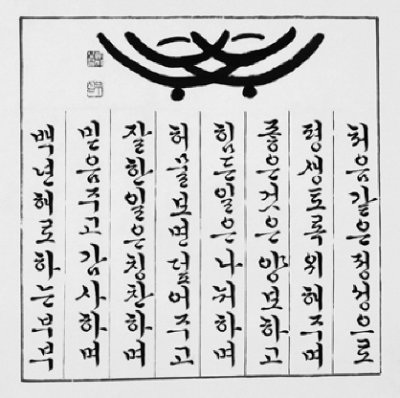 처음같은정성으로
평생토록위해주며
좋은것은양보하고
힘든일은나눠하며
허물보면덮어주고
잘한일은칭찬하며
믿음주고감사하며
백년해로하는부부